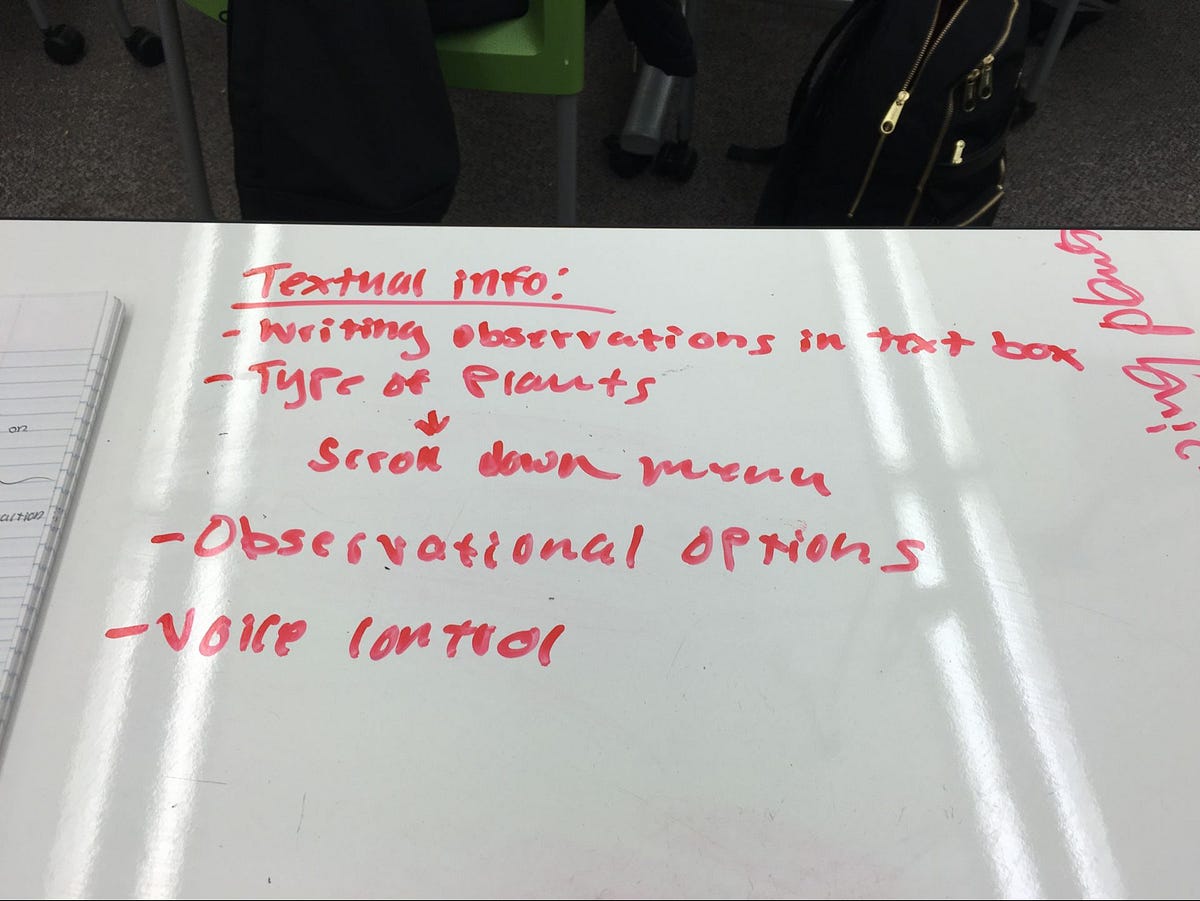 Textual info:
- Writing observations in text box
- Type of Plants
↓
Scroll down menu
- Observational options
- Voice control
on